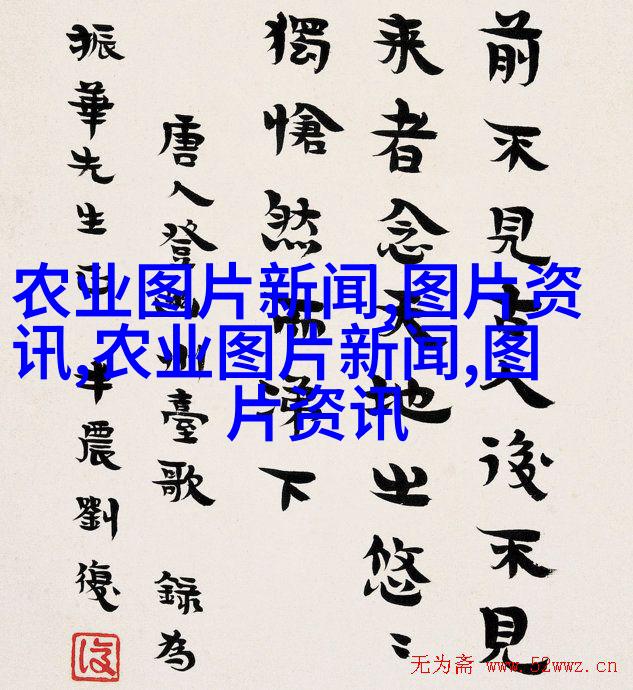 前不見古人後不見
来者念天地之悠〻
獨愴然而涕下
唐人登幽州臺歌 錄為
振華先生正 半農劉復
农业图片新闻,图片资
讯,农业图片新闻,图
片资讯
无为斋 www.52wwz.cn